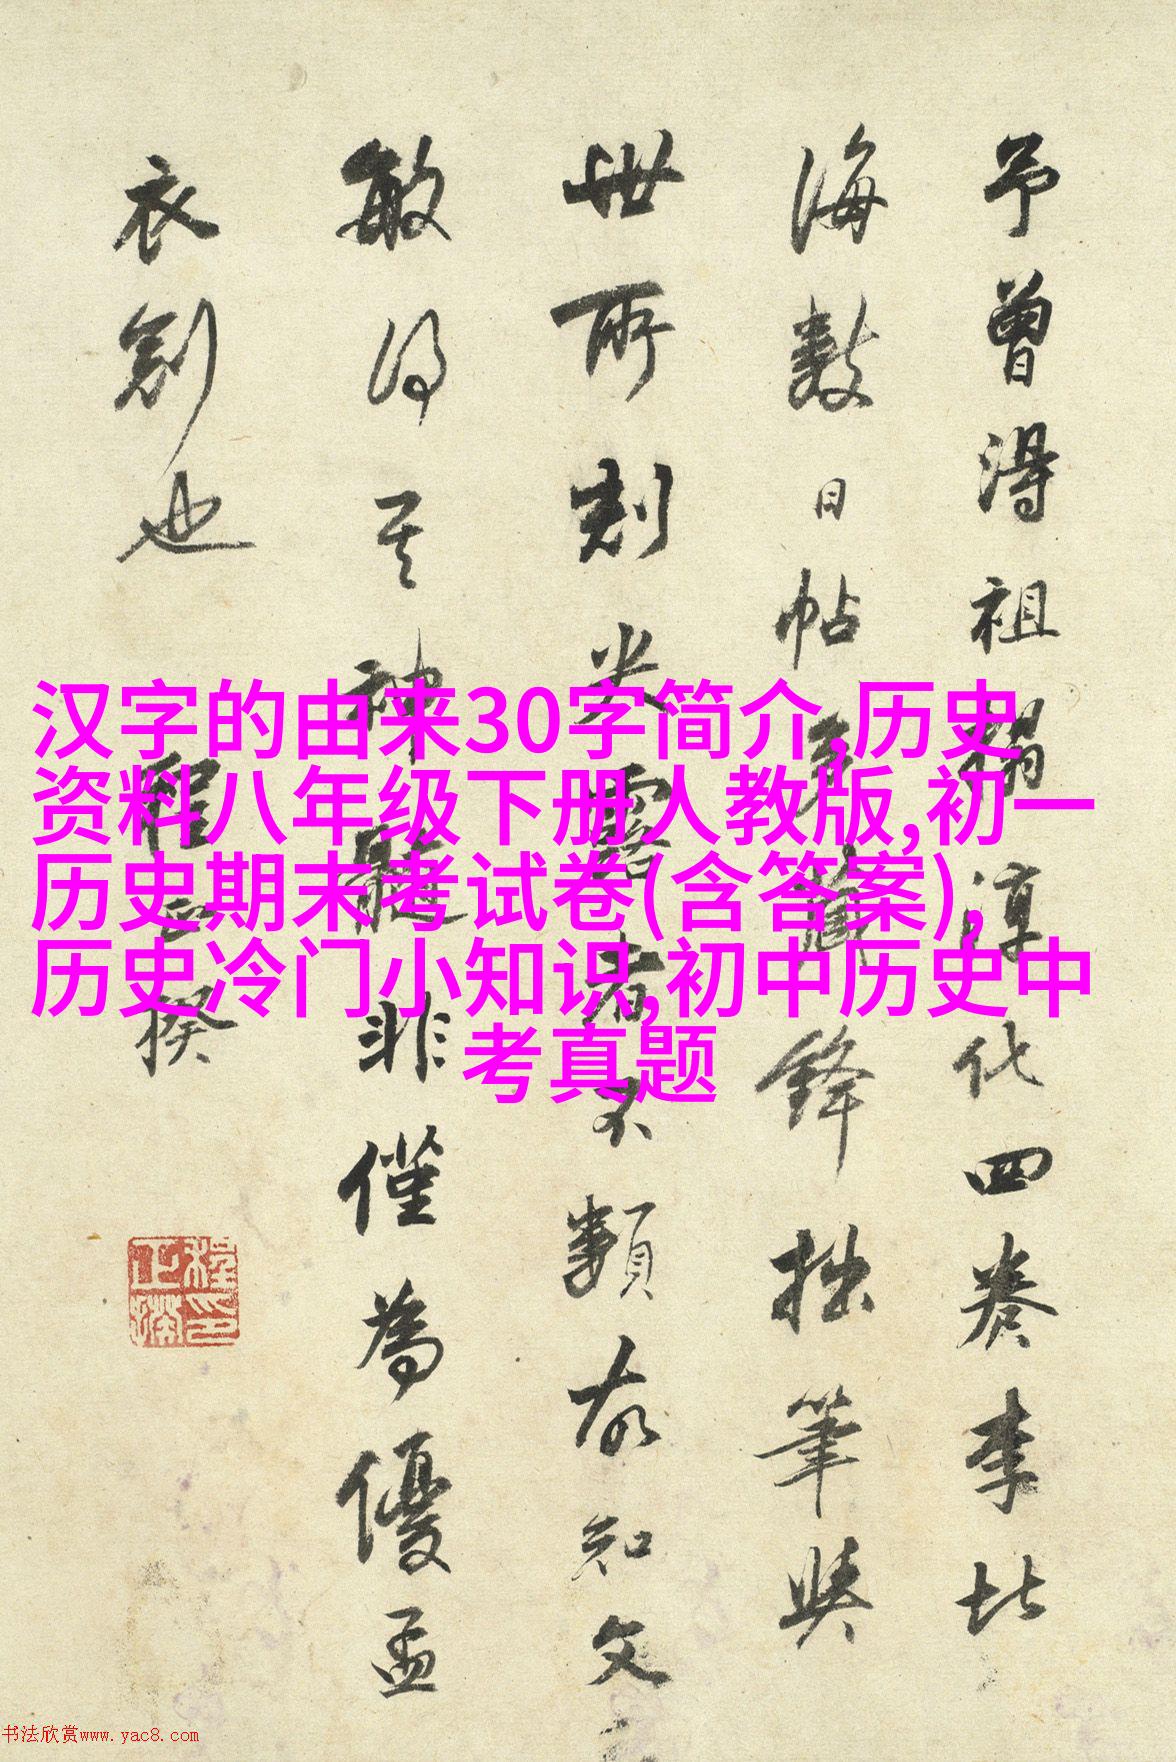 予曾得祖搨淳化四卷李北
海數日帖
鋒拙筆與
世所刻米
者不類故知文
敏得其神髓非僅為優孟
衣劍也
程正揆
汉字的由来30字简介,历史
资料八年级下册人教版,初一
历史期末考试卷(含答案),
历史冷门小知识,初中历史中
考真题
书法欣赏www.yac8.com